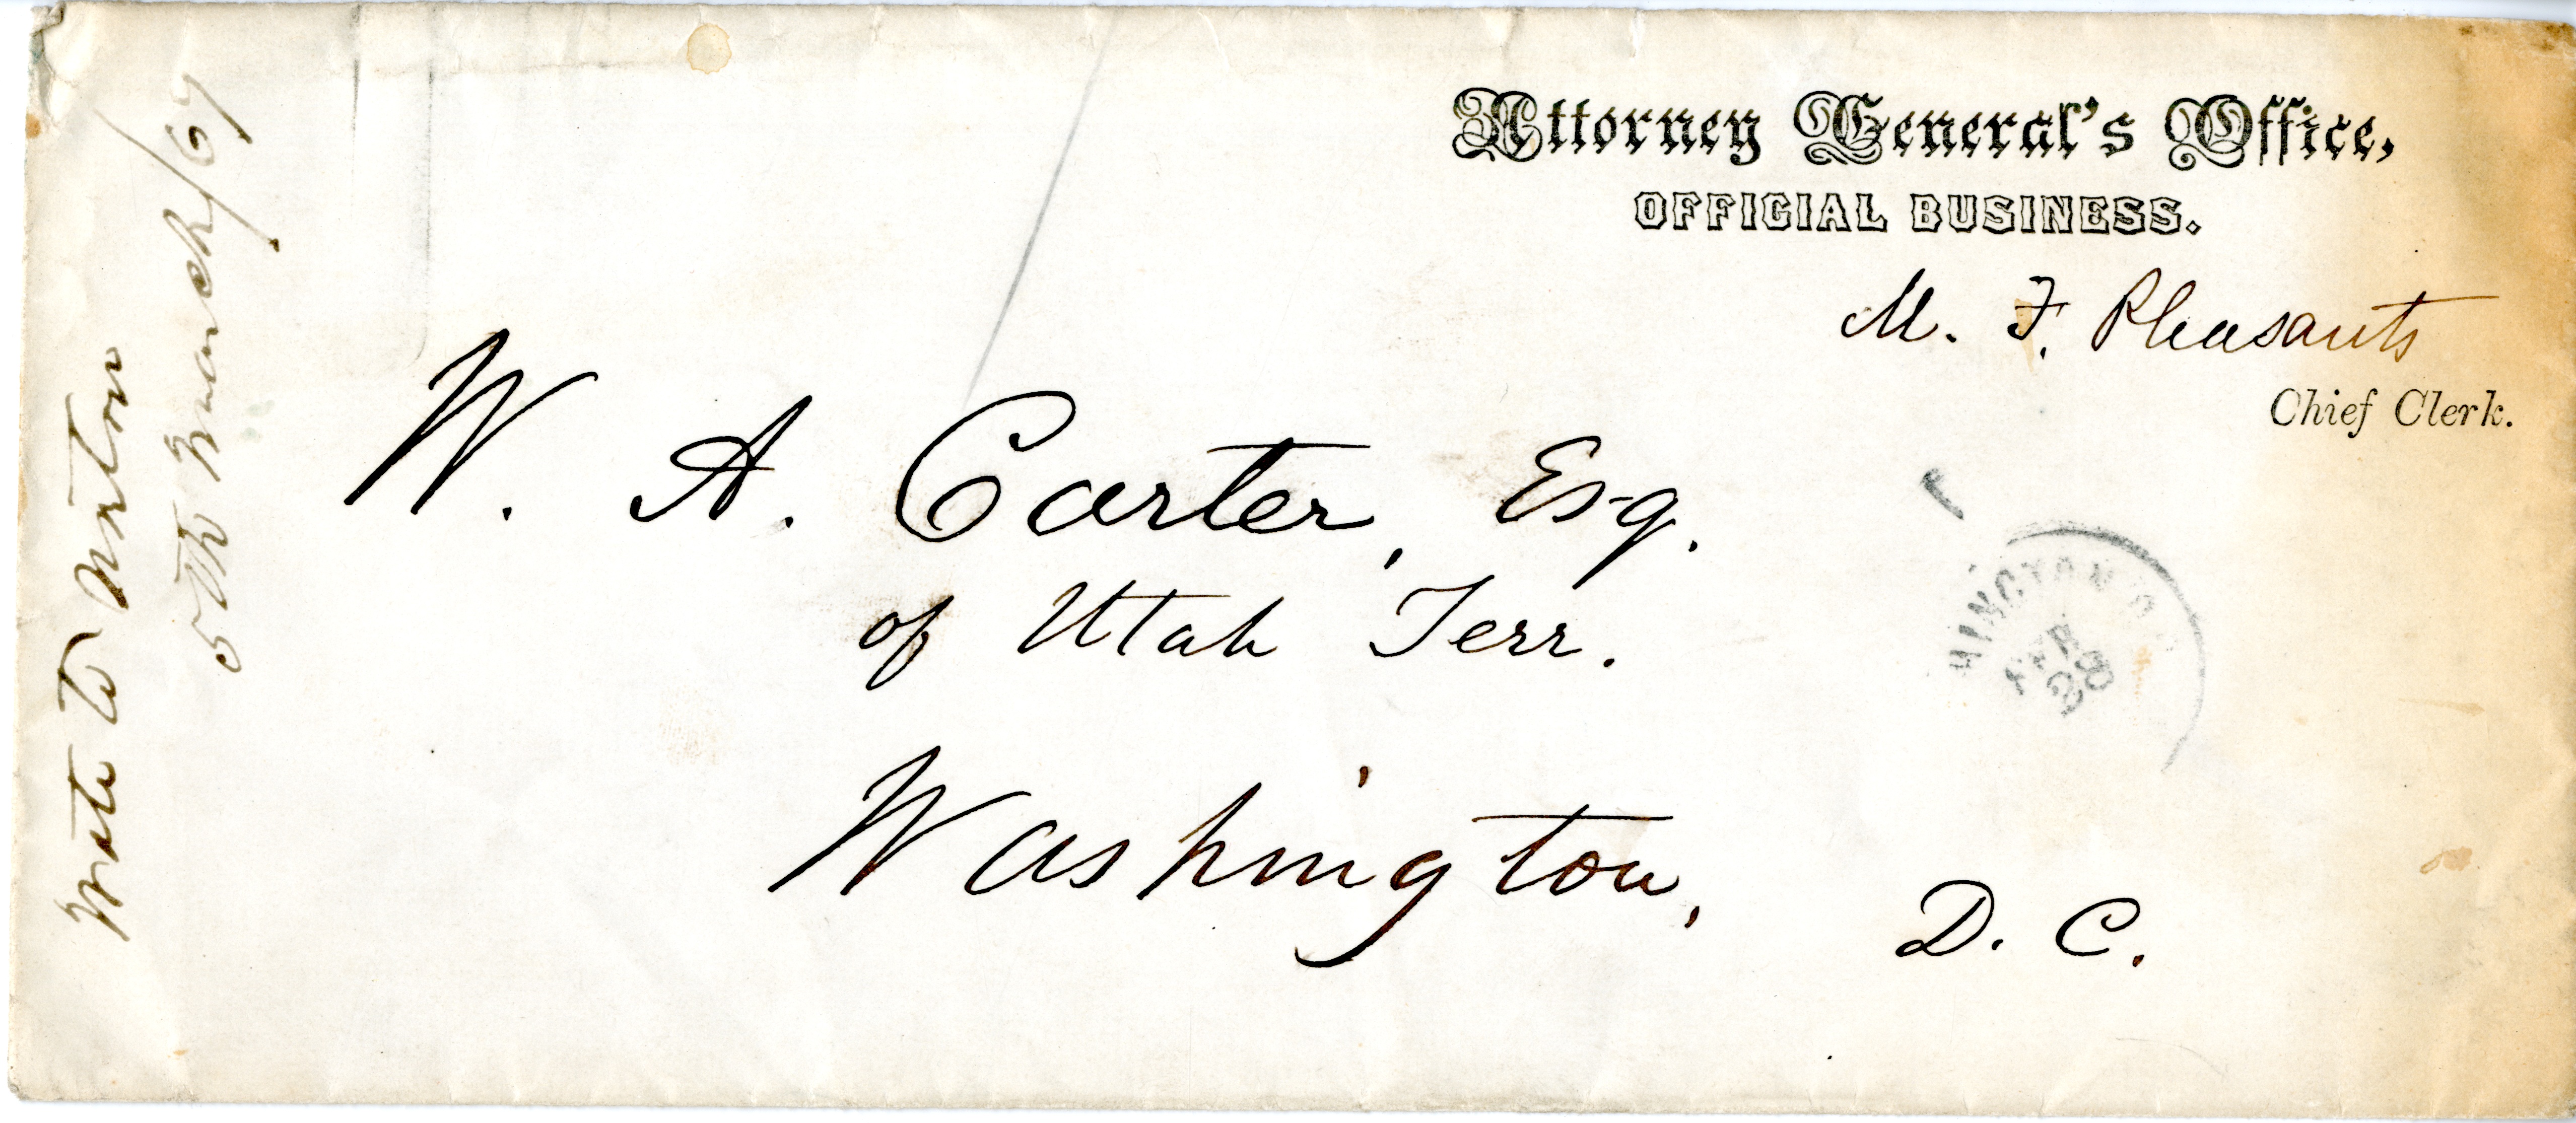 Attorney General's Office,
OFFICIAL BUSINESS.
M. F. Pleasants
Chief Clerk.
W. A. Carter, Esq.
of Utah Terr.
Washington, D. C.
HINGTON D
FEB
28
Wrote to
5th March/67